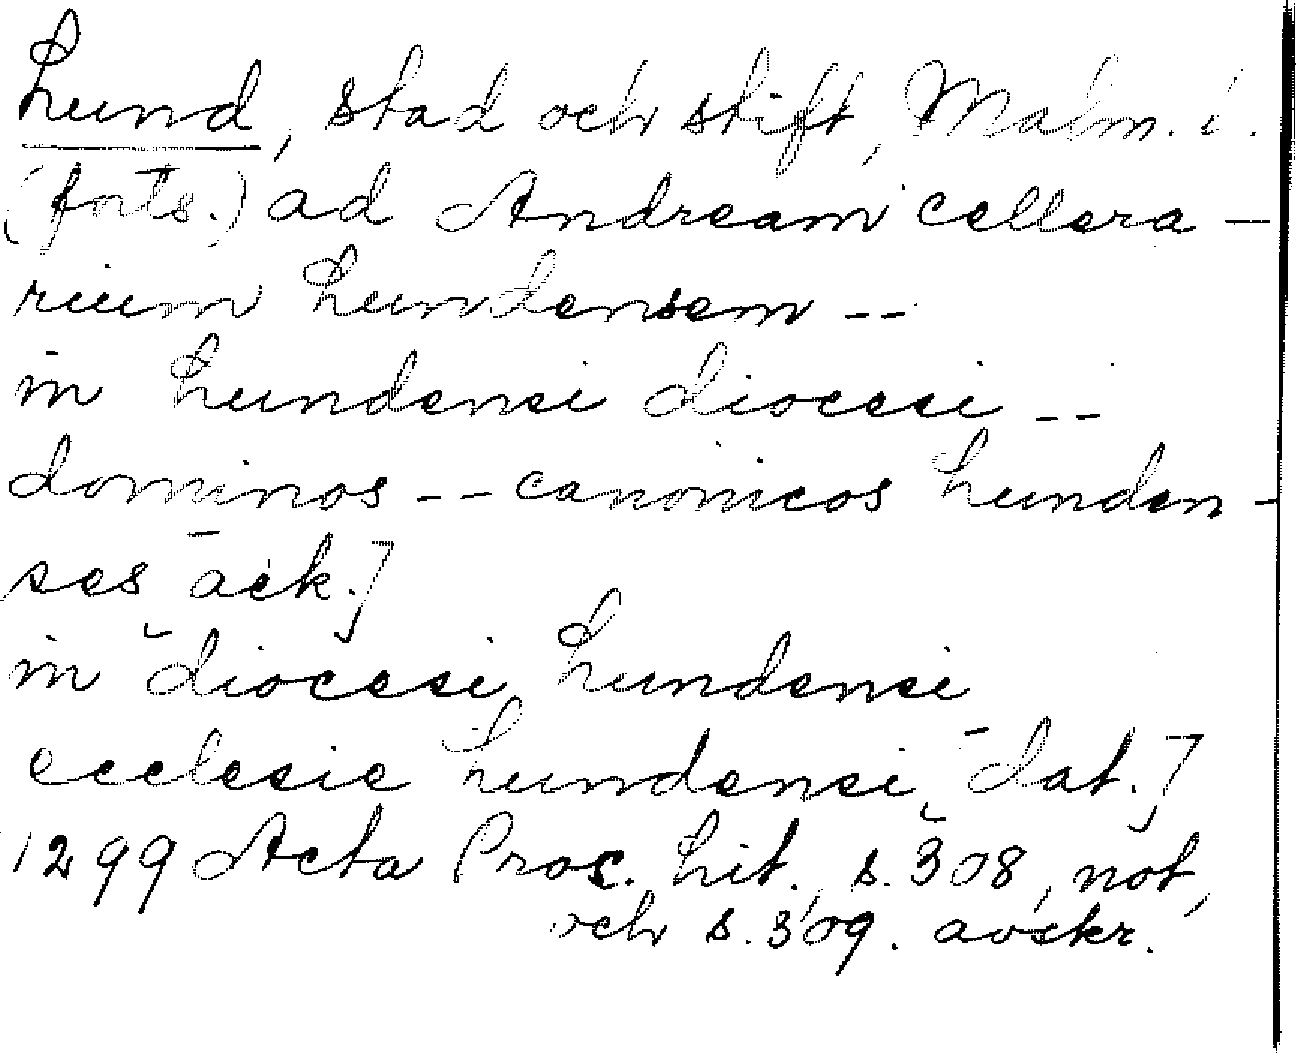 Lund, stad och stift, Malm. l.
(forts.) ad Andream cellera-
rium Lundensem --
in Lundensi diocesi --
dominos -- canonicos Lunden-
ses [ack.]
in diocesi Lundensi
ecclesie Lundensi [dat.]
1299 Acta Proc. Lit., s. 308, not,
och s. 309. avskr.